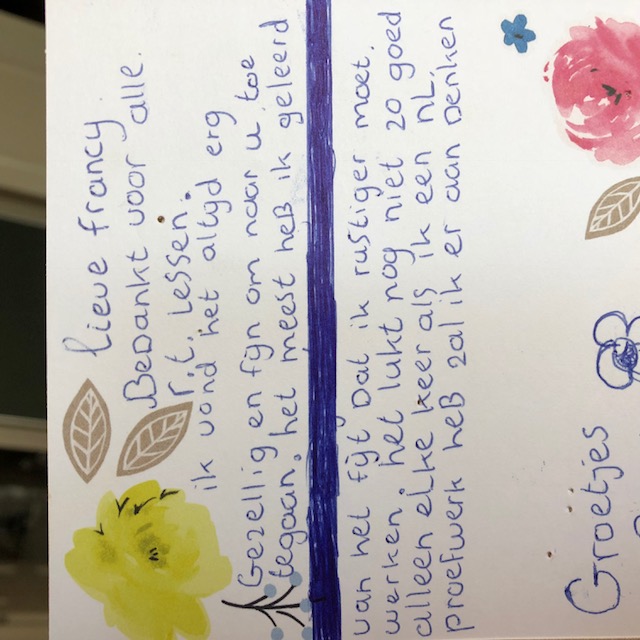 Lieve francy.
Bedankt voor alle.
r.t. Lessen.
ik vond het altyd erg
Gezellig en fyn om naar u toe
tegaan. het meest heb ik geleerd
van het fyt Dat ik rustiger moet.
werken. het lukt nog niet zo goed
alleen elke keer als ik een NL,
proefwerk heb zal ik er aan Denken
Groetjes